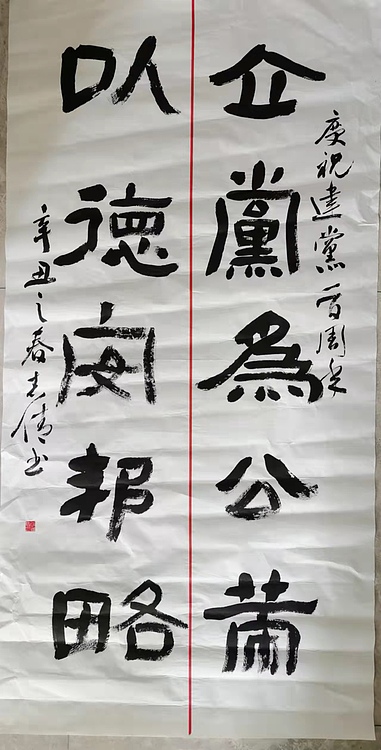 慶祝建黨百周年
立黨為公
以德安邦略
辛丑之春